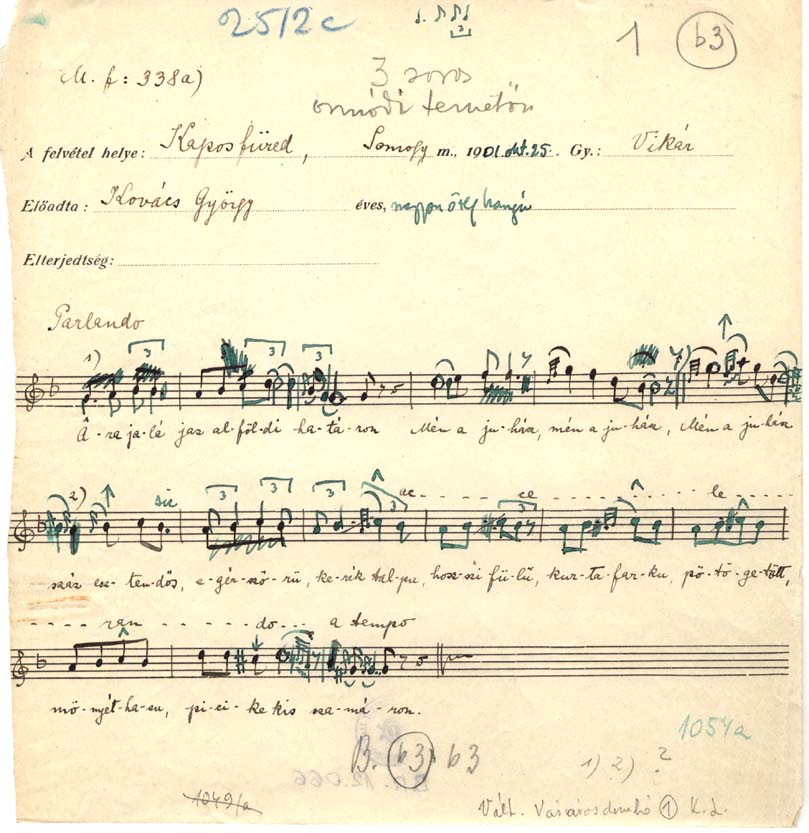 2512c
1 b3
M. f: 338a)
3 soros
ormódi temetőn
A felvétel helye: Kaposfüred, Somogy m., 1901 okt. 25. Gy.: Vikár
Előadta: Kovács György éves, nagyon öreg hangú
Elterjedtség:
Parlando
1) 3 3 3
Â-ra ja-lá jaz al-föl-di ha-tá-ron Mén a ju-hász, mén a ju-hász, Mén a ju-hász
2) sic 3 3 3 ac - - - ce - - - le - - -
száz esz-ten-dős, e-gér-sző-rű, ke-rék tal-pu, hosz-szi fü-lű, kur-ta far-ku, pö-tö-ge-tött,
- - - - ran - - - - - do - - - a tempo
mö-nyét-ha-su, pi-ci-ke kis sza-má-ron.
1054a
B. b3 b3
1) 2) ?
1049/a
Vált. Vásárosdombó 1 K. L.